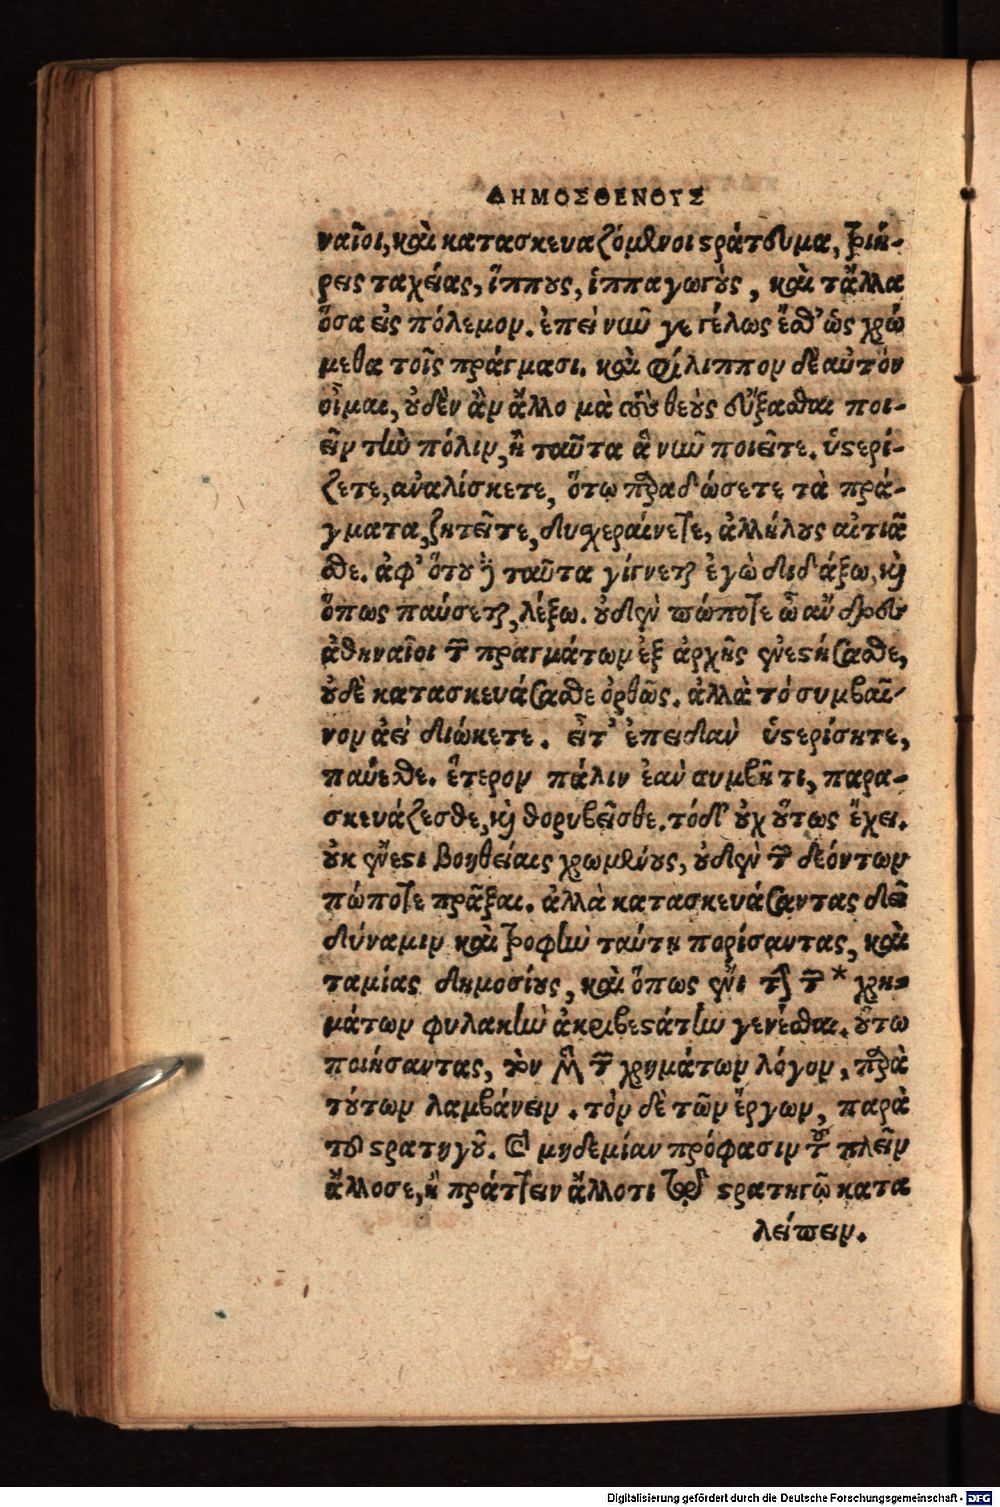 ΔΗΜΟΣΘΕΝΟΥΣ
ναῖοι, καὶ κατασκευαζόμενοι στράτευμα, τριή-
ρεις ταχείας, ἵππους, ἱππαγωγοὺς, καὶ τἄλλα
ὅσα εἰς πόλεμον. ἐπεὶ νῦν γε γέλως ἔσθ' ὡς χρώ
μεθα τοῖς πράγμασι. καὶ φίλιππον δὲ αὐτὸν
οἶμαι, οὐδὲν ἂν ἄλλο μὰ τοὺς θεοὺς εὔξασθαι ποι-
εῖν τὴν πόλιν, ἢ ταῦτα ἃ νῦν ποιεῖτε. ὑστερί-
ζετε, ἀναλίσκετε, ὅτῳ παραδώσετε τὰ πρά-
γματα, ζητεῖτε, δυσχεραίνετε, ἀλλήλους αἰτιᾶ
σθε. ἀφ' ὅτου δὲ ταῦτα γίγνεται ἐγὼ διδάξω, καὶ
ὅπως παύσεται, λέξω. οὐδὲν πώποτε ὦ ἄνδρες
ἀθηναῖοι τῶν πραγμάτων ἐξ ἀρχῆς ἐνεστήσασθε,
οὐδὲ κατασκευάσασθε ὀρθῶς. ἀλλὰ τὸ συμβαῖ-
νον ἀεὶ διώκετε. εἶτ' ἐπειδὰν ὑστερίσητε,
παύεσθε. ἕτερον πάλιν ἐὰν συμβῇ τι, παρα-
σκευάζεσθε, καὶ θορυβεῖσθε. τόδ' οὐχ οὕτως ἔχει.
οὐκ ἔνεστι βοηθείαις χρωμένους, οὐδὲν τῶν δεόντων
πώποτε πρᾶξαι. ἀλλὰ κατασκευάσαντας δεῖ
δύναμιν καὶ τροφὴν ταύτῃ πορίσαντας, καὶ
ταμίας δημοσίους, καὶ ὅπως ἔνι τὴν τῶν * χρη-
μάτων φυλακὴν ἀκριβεστάτην γενέσθαι. οὕτω
ποιήσαντας, τὸν μὲν τῶν χρημάτων λόγον, παρὰ
τούτων λαμβάνειν. τὸν δὲ τῶν ἔργων, παρὰ
τοῦ στρατηγοῦ. καὶ μηδεμίαν πρόφασιν τοῦ πλεῖν
ἄλλοσε, ἢ πράττειν ἄλλό τι τῷ στρατηγῷ κατα
λείπειν.
Digitalisierung gefördert durch die Deutsche Forschungsgemeinschaft - DFG